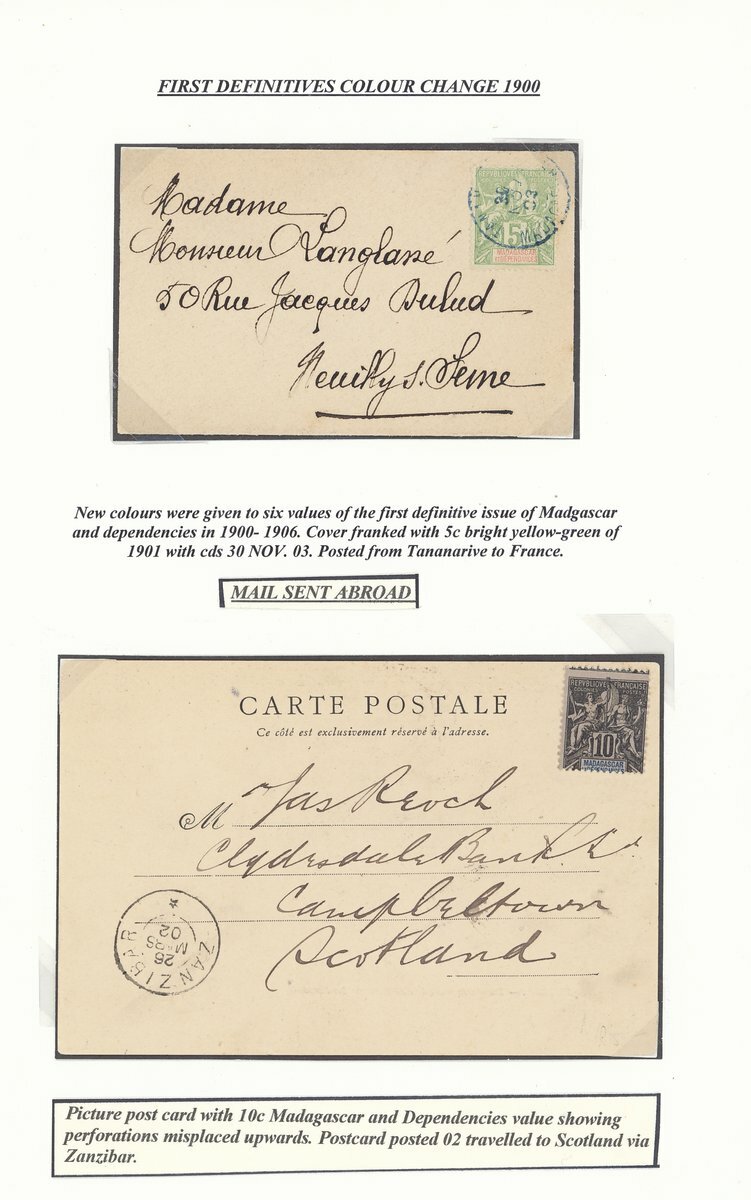 FIRST DEFINITIVES COLOUR CHANGE 1900
REPVBLIQVE FRANÇAISE
5
MADAGASCAR
ET DÉPENDANCES
30
NOV
03
Madame
Monsieur Langlassé
50 Rue Jacques Dulud
Neuilly s. Seine
New colours were given to six values of the first definitive issue of Madgascar
and dependencies in 1900- 1906. Cover franked with 5c bright yellow-green of
1901 with cds 30 NOV. 03. Posted from Tananarive to France.
MAIL SENT ABROAD
REPVBLIQVE FRANÇAISE
COLONIES POSTES
10
MADAGASCAR
CARTE POSTALE
Ce côté est exclusivement réservé à l'adresse.
M Jas Reoch
Clydesdale Bank Ld
Campbeltown
Scotland
ZANZIBAR
26
MARS
02
Picture post card with 10c Madagascar and Dependencies value showing
perforations misplaced upwards. Postcard posted 02 travelled to Scotland via
Zanzibar.